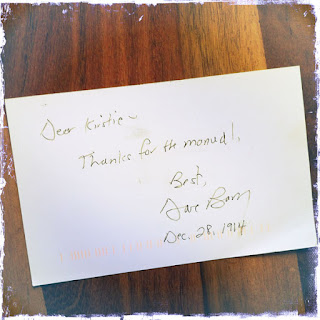 Dear Kristie~
Thanks for the manual!,
Best,
Dave Barry
Dec. 28, 1914